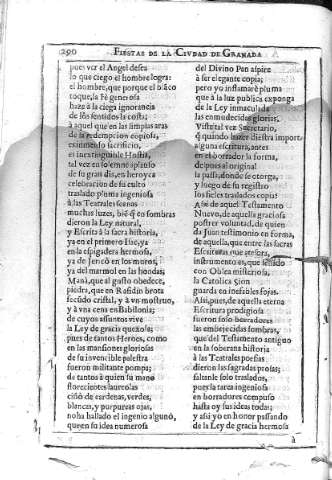 290 FIESTAS DE LA CIVDAD DE GRANADA
pues ver el Angel dessea
lo que ciego el hombre logra:
el hombre, que porque el blāco
toque, la Fè generosa
haze à la ciega ignorancia
de los sentidos la costa;
à aquel que en las limpias aras
de la redempcion copiosa,
es incruento sacrificio,
es inextinguible Hostia,
tal vez en solemne
de su gran dia, en heroyca
celebracion de su culto
traslado pluma ingeniosa
à las Teatrales scenas
muchas luzes, bié q̃ con sombras
dieron la Ley natural,
y Escrita à la sacra historia,
ya en el primero Iuez, ya
en la espigadera hermosa,
ya de Iericò en los muros,
ya del marmol en las hondas;
Manà, que al gusto obedece,
piedra, que en Rafidin brota
fecundo cristal, y à vn mostruo,
y à vna cena en Babilonia;
de cuyos assuntos vive
la Ley de gracia quexosa;
pues de tantos Heroes, como
en las mansiones gloriosas
de su invencible palestra
fueron militante pompa;
de tantos à quien la mano
florecientes laureolas
ciñò de cardenas, verdes,
blancas, y purpureas ojas,
no ha hallado el ingenio alguno,
que en su idea numerosa
del Divino Pan aspire
à ser elegante copia;
pero yo inflamarè pluma
que à la luz publica exponga
de la Ley inmaculada
las enmudecidas glorias.
Viste tal vez Secretario,
q̃ quando hazer diestra importa
alguna escritura, antes
en el borrador la forma,
despues al original
la passa, donde se otorga,
y luego de su registro
los fieles traslados copia?
Assi de aquel Testamento
Nuevo, de aquella graciosa
postrer voluntad, de quien
da Juan testimonio en forma,
de aquella, que entre las sacras
Escrituras que atesora,
instrumento es, que sellado
con Oblea misteriosa,
la Catolica Sion
guarda en inefables fojas.
Assi, pues, de aquella eterna
Escritura prodigiosa
fueron solo borradores
las embejecidas sombras,
que del Testamento antiguo
en la soberana historia
à las Teatrales poesias
dieron las sagradas prosas;
saltante solo traslados,
pues la tarea ingeniosa
en borradores compuso
hasta oy sus ideas todas;
y assi yo en honor passando
de la Ley de gracia hermosa
à